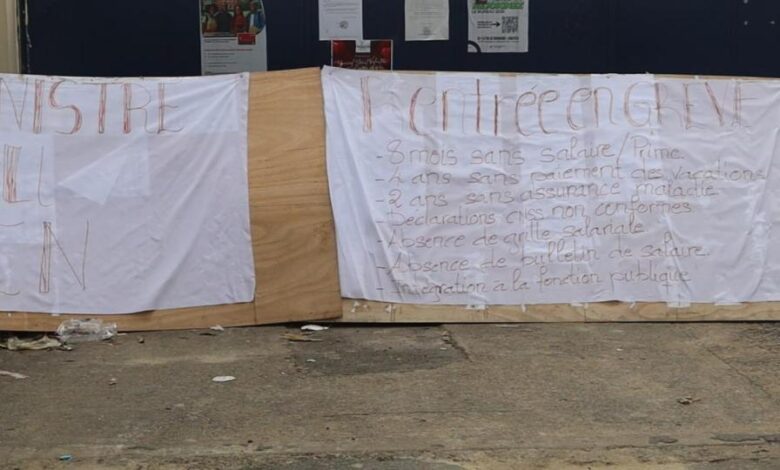 NISTRE
EN
Rentrée en GREVE
- 8 mois sans salaire/Prime
- 4 ans sans paiement des vacations
- 2 ans sans assurance maladie
- Déclarations cnss non conformes
- Absence de grille salariale
- Absence de bulletin de salaire
- Intégration à la fonction publique